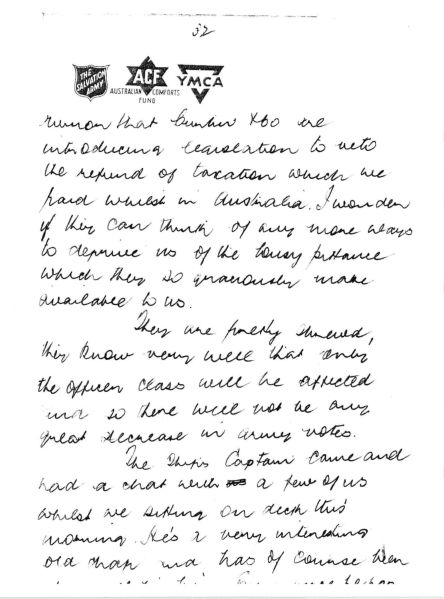 32
THE SALVATION ARMY
ACF
AUSTRALIAN COMFORTS FUND
YMCA
rumor that Curtin & Co are
introducing legislation to veto
the refund of taxation which we
paid whilst in Australia. I wonder
if they can think of any more ways
to deprive us of the lousy pittance
which they so graciously make
available to us.
They are pretty shrewd,
they know very well that only
the officer class will be affected
and so there will not be any
great decrease in army votes.
The Ship's Captain came and
had a chat with a few of us
whilst we sitting on deck this
morning. He's a very interesting
old chap and has of course been